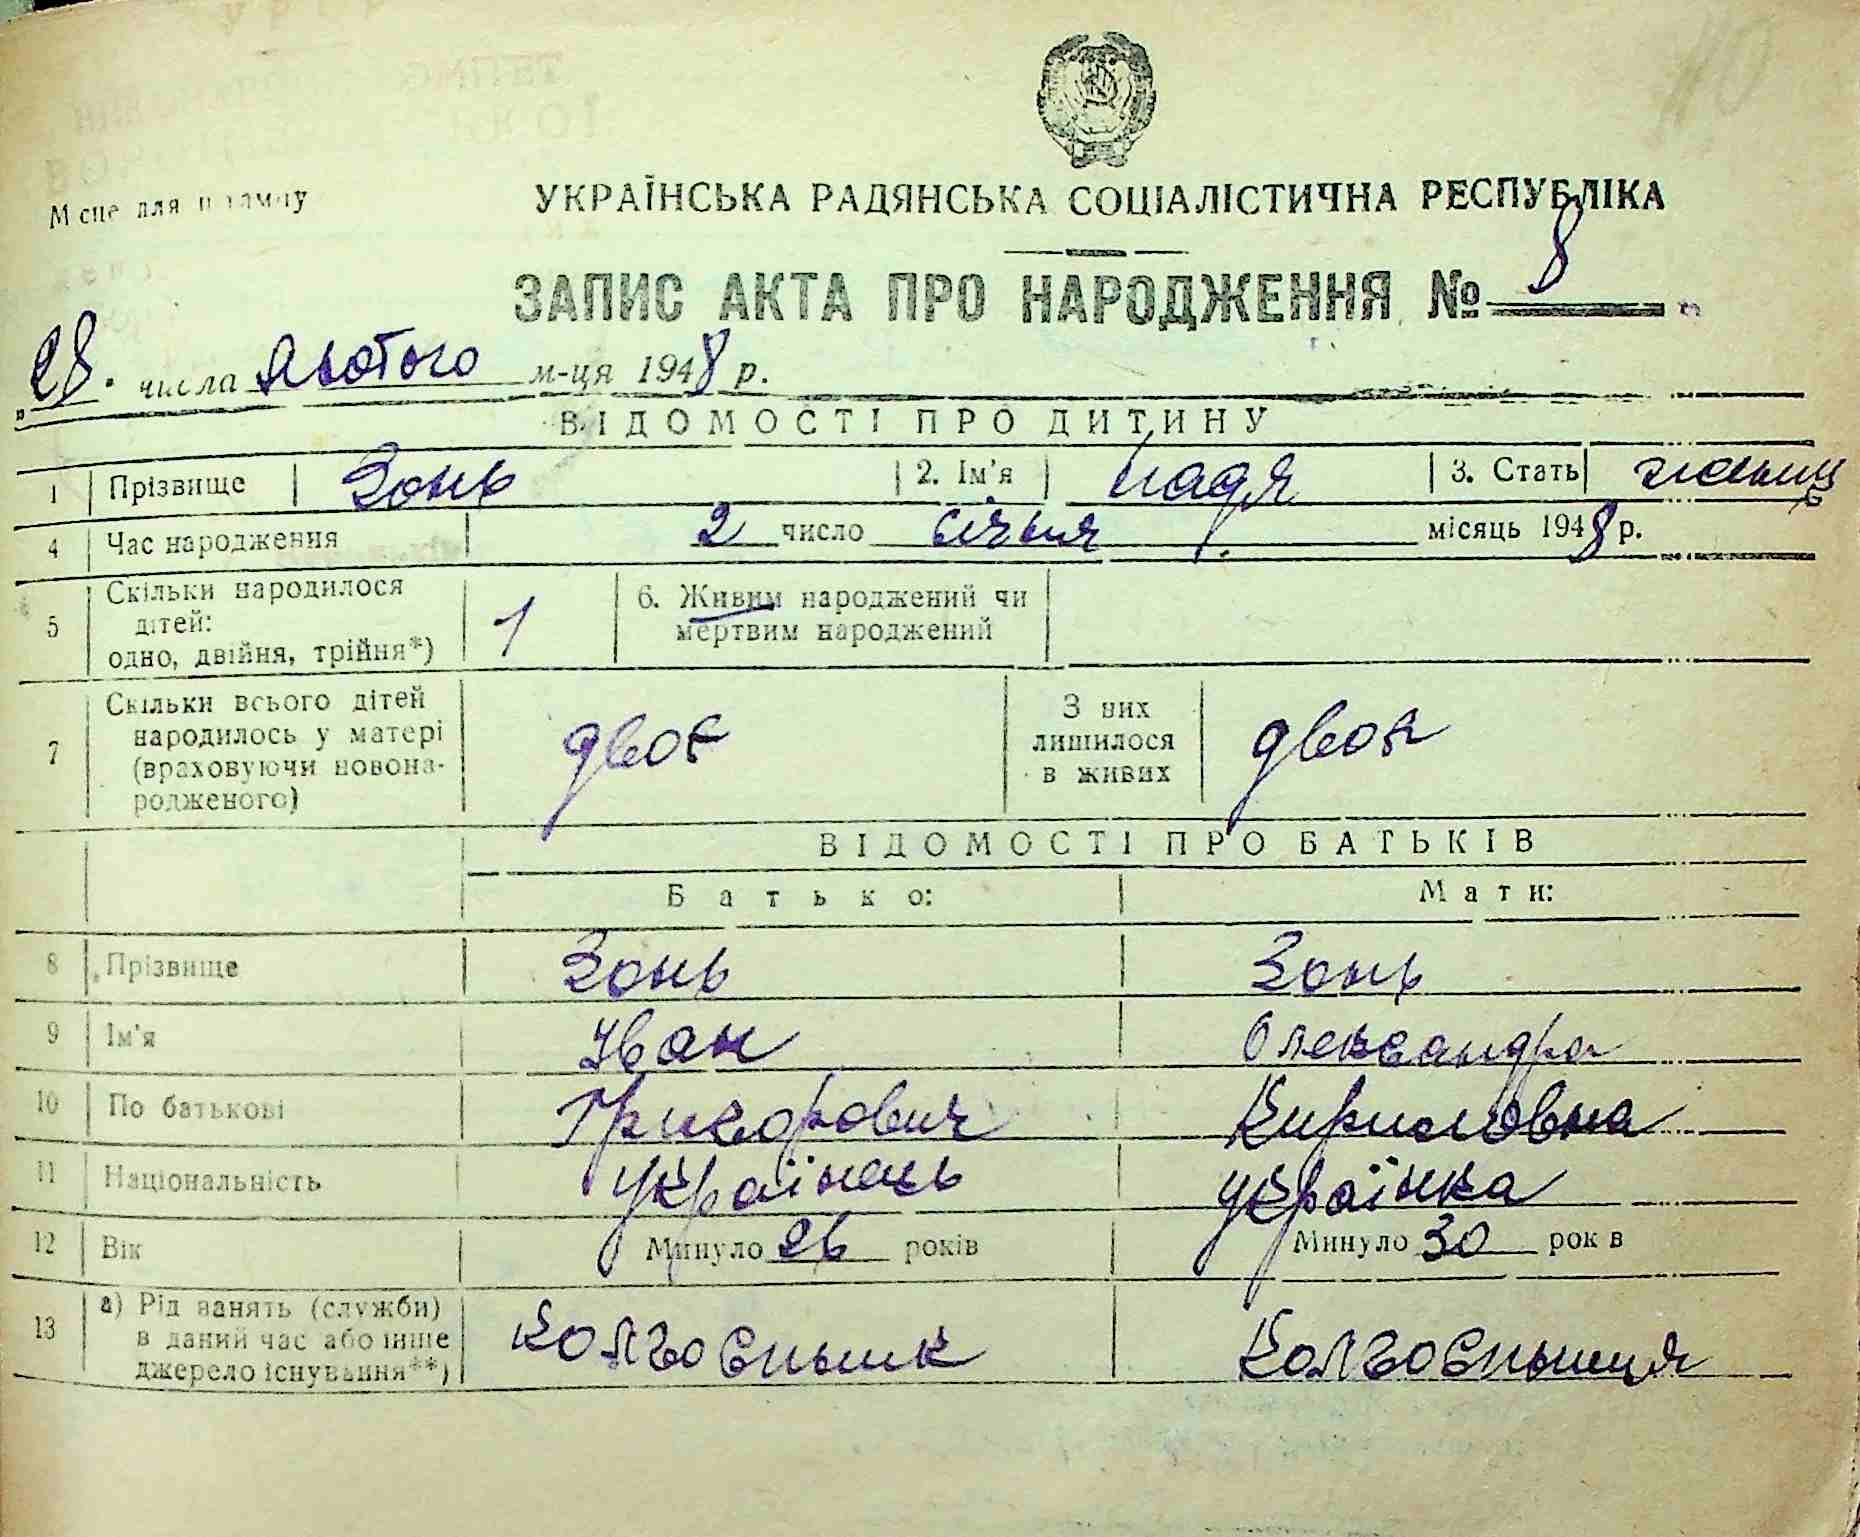 Місце для штампу
УКРАЇНСЬКА РАДЯНСЬКА СОЦІАЛІСТИЧНА РЕСПУБЛІКА
ЗАПИС АКТА ПРО НАРОДЖЕННЯ № 8
„28" числа лютого м-ця 1948 р.
ВІДОМОСТІ ПРО ДИТИНУ
1 Прізвище Зонь 2. Ім'я Надя 3. Стать
4 Час народження 2 число січня місяць 1948 р.
5 Скільки народилося дітей: одно, двійня, трійня*) 1 6. Живим народжений чи мертвим народжений
7 Скільки всього дітей народилось у матері (враховуючи новонародженого) двоє З них лишилося в живих двоє
ВІДОМОСТІ ПРО БАТЬКІВ
Батько: Мати:
8 Прізвище Зонь Зонь
9 Ім'я Іван Олександра
10 По батькові Григорович Кириловна
11 Національність українець українка
12 Вік Минуло 26 років Минуло 30 років
13 а) Рід занять (служби) в даний час або інше джерело існування**) колгоспник колгоспниця